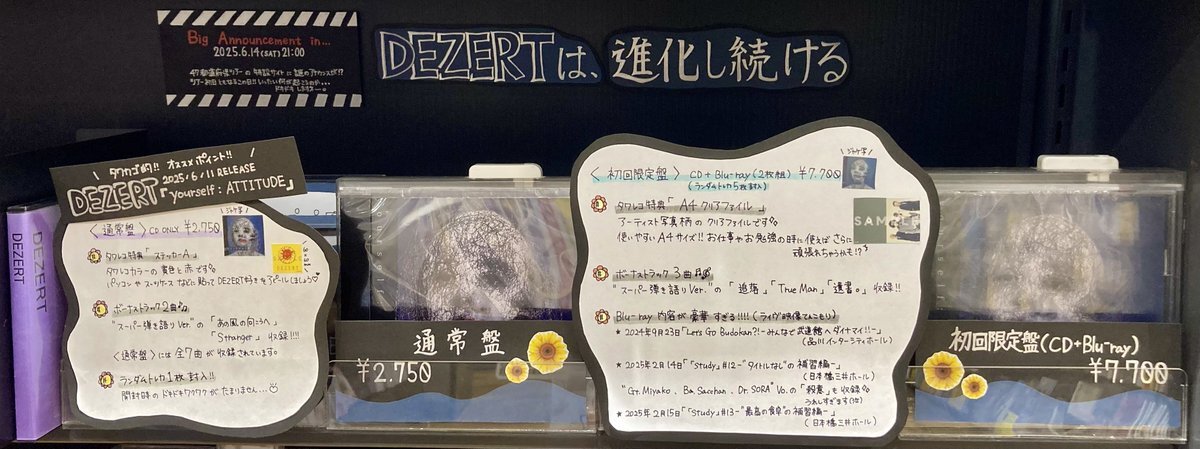 Big Announcement in...
2025.6.14(SAT)21:00
47都道府県ツアーの特設サイトに謎のアナウンスが!?
DEZERTは、進化し続ける
タワカゴ的!! オススメポイント!!
2025.6/11 RELEASE
DEZERT「yourself:ATTITUDE」
〈通常盤〉CD ONLY ¥2.750
ジャケ写
タワレコ特典「ステッカーA」
タワレコカラーの黄色と赤です。
パソコンやスーツケースなどに貼ってDEZERT好きをアピールしましょう♡
ボーナストラック2曲
"スーパー弾き語りVer."の「あの風の向こうへ」
「Stranger」収録!!!!
〈通常盤〉には全7曲が収録されています。
ランダムトレカ1枚封入!!
開封時のドキドキワクワクがたまりません...
DEZERT
DEZERT
通常盤
¥2.750
〈初回限定盤〉CD+Blu-ray(2枚組) ¥7.700
(ランダムトレカ5枚封入)
ジャケ写
タワレコ特典「A4クリアファイル」
アーティスト写真柄のクリアファイルです。
使いやすいA4サイズ!!お仕事やお勉強の時に使えばさらに
頑張れちゃうかも!?
SAMPLE
ボーナストラック3曲
"スーパー弾き語りVer."の「道落」「True Man」「遺書。」収録!!
Blu-ray内容が豪華すぎる!!!!(ライヴ映像てんこもり)
★2024年9月23日「Let's Go Budokan?!-みんなで武道館へダイナマイ!!-」
(品川インターシティホール)
★2025年2月14日「"Study"#12-"タイトルなし"の補習編-」
(日本橋三井ホール)
"Gt.Miyako、Ba.Sacchan、Dr.SORA"Vo.の「殺意」も収録
うれしすぎます(泣)
★2025年2月15日「"Study"#13-"最高の食卓"の補習編-」
(日本橋三井ホール)
初回限定盤(CD+Blu-ray)
¥7.700